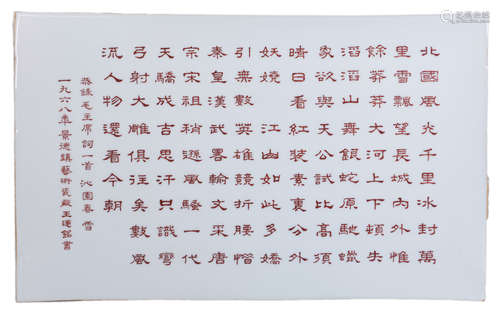 北國風光千里冰封萬
里雪飄望長城內外惟
餘莽莽大河上下頓失
滔滔山舞銀蛇原馳蠟
象欲與天公試比高須
晴日看紅裝素裹分外
妖嬈 江山如此多嬌
引無數英雄競折腰惜
秦皇漢武畧輸文采唐
宗宋祖稍遜風騷一代
天驕成吉思汗只識彎
弓射大雕俱往矣數風
流人物還看今朝
恭錄毛主席詞一首 沁園春 雪
一九六八年景德鎮藝術瓷廠王運銘書